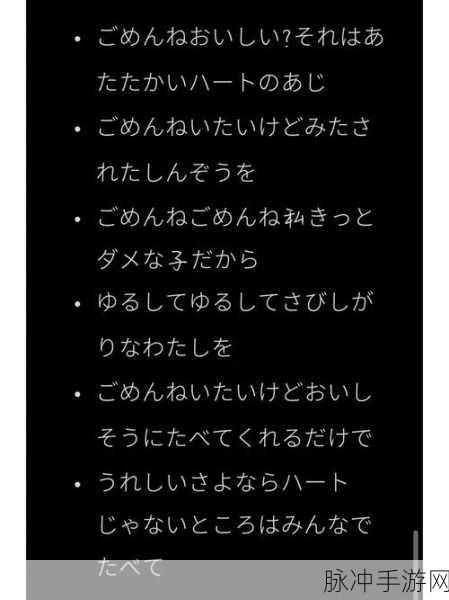 • ごめんねおいしい?それはあ
たたかいハートのあじ
• ごめんねいたいけどみたさ
れたしんぞうを
• ごめんねごめんね私きっと
ダメな子だから
• ゆるしてゆるしてさびしが
りなわたしを
• ごめんねいたいけどおいし
そうにたべてくれるだけで
• うれしいさよならハート
じゃないところはみんなで
たべて
脉冲手游网